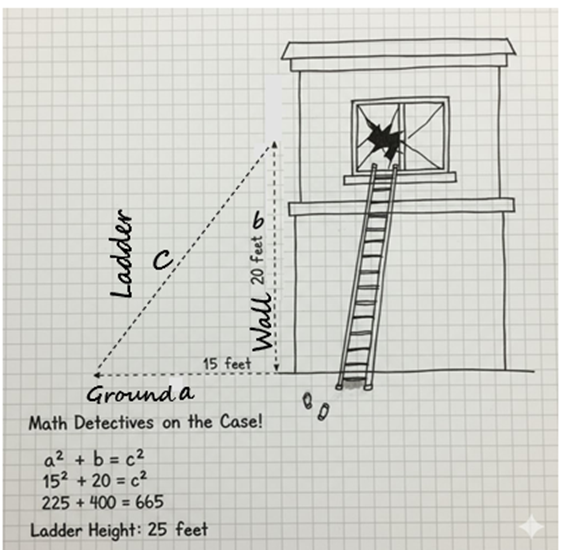 Ladder
C
b
Wall
20 feet
15 feet
Ground a
Math Detectives on the Case!
a² + b = c²
15² + 20 = c²
225 + 400 = 665
Ladder Height: 25 feet